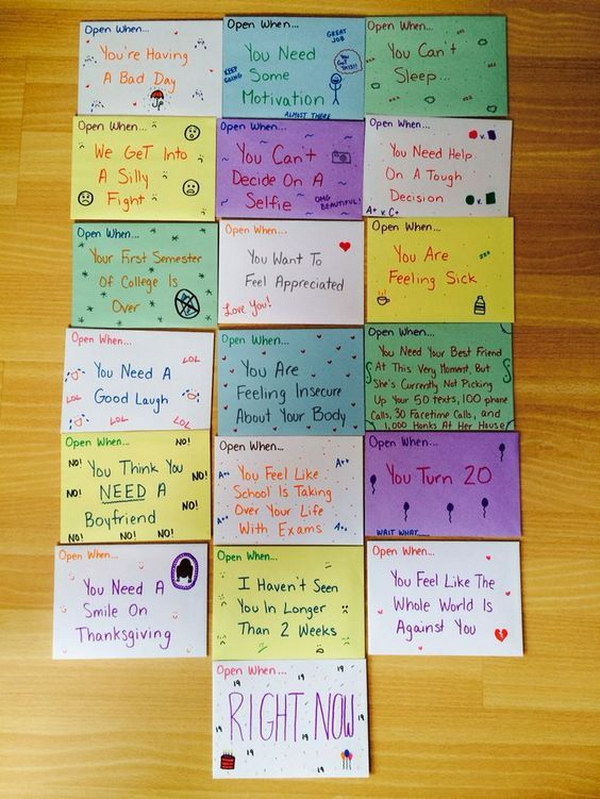 Open When...
You're Having
A Bad Day
Open When...
GREAT
JOB
You Need
Some
Motivation
KEEP
GOING
YOU
GOT
THIS!!
ALMOST THERE
Open When...
You Can't
Sleep...
Open When...
We GeT Into
A Silly
Fight
Open When...
You Can't
Decide On A
Selfie
OMG
BEAUTIFUL!
Open When...
You Need Help
On A Tough
Decision
v.
v.
A+ v. C+
Open When...
Your First Semester
Of College Is
Over
Open When...
You Want To
Feel Appreciated
Love You!
Open When...
You Are
Feeling Sick
Open When...
You Need A
Good Laugh
LOL
LOL
LOL
LOL
Open When...
You Are
Feeling Insecure
About Your Body
Open When...
You Need Your Best Friend
At This Very Moment, But
She's Currently Not Picking
Up Your 50 texts, 100 phone
Calls, 30 Facetime Calls, and
1,000 Honks At Her House
Open When...
You Think You
NEED A
Boyfriend
NO!
NO!
NO!
NO!
NO!
NO!
NO!
NO!
Open When...
You Feel Like
School Is Taking
Over Your Life
With Exams
A++
A++
A++
A++
Open When...
You Turn 20
WAIT WHAT
Open When...
You Need A
Smile On
Thanksgiving
Open When...
I Haven't Seen
You In Longer
Than 2 Weeks
Open When...
You Feel Like The
Whole World Is
Against You
Open When...
RIGHT NOW
19
19
19
19
19
19
19
19